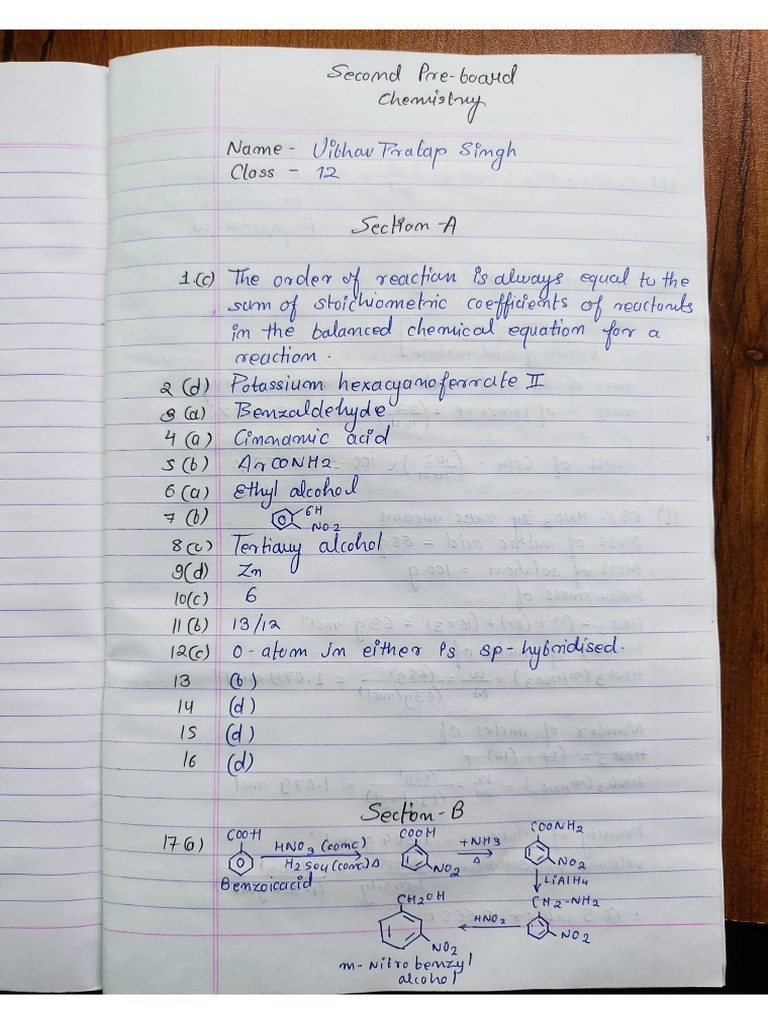 Second Pre-board
Chemistry
Name - Vibhav Pratap Singh
Class - 12
Section-A
1.(c) The order of reaction is always equal to the
sum of stoichiometric coefficients of reactants
in the balanced chemical equation for a
reaction.
2 (d) Potassium hexacyanoferrate II
3 (a) Benzaldehyde
4 (a) Cinnamic acid
5 (b) ArCONH2
6 (a) Ethyl alcohol
7 (b) OH
NO2
8 (c) Tertiary alcohol
9(d) Zn
10(c) 6
11 (b) 13/12
12(c) O-atom in either is sp-hybridised.
13 (b)
14 (d)
15 (d)
16 (d)
Section-B
17 COOH HNO3 (conc) H2SO4(conc) Δ COOH NO2 +NH3 Δ CONH2 NO2
Benzoicacid
LiAlH4
CH2-NH2 NO2
HNO2
CH2OH NO2
m-Nitro benzyl
alcohol